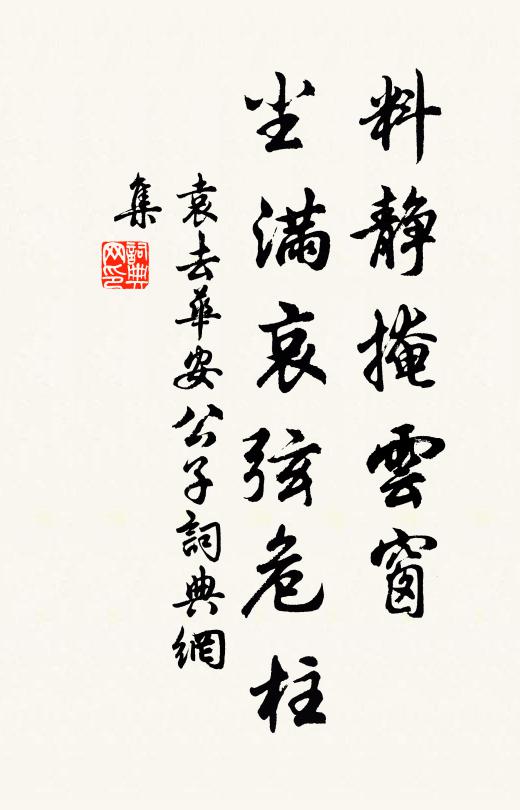 料靜掩雲窗
尘滿哀弦危柱
袁去華安公子詞典網
集
詞典网印